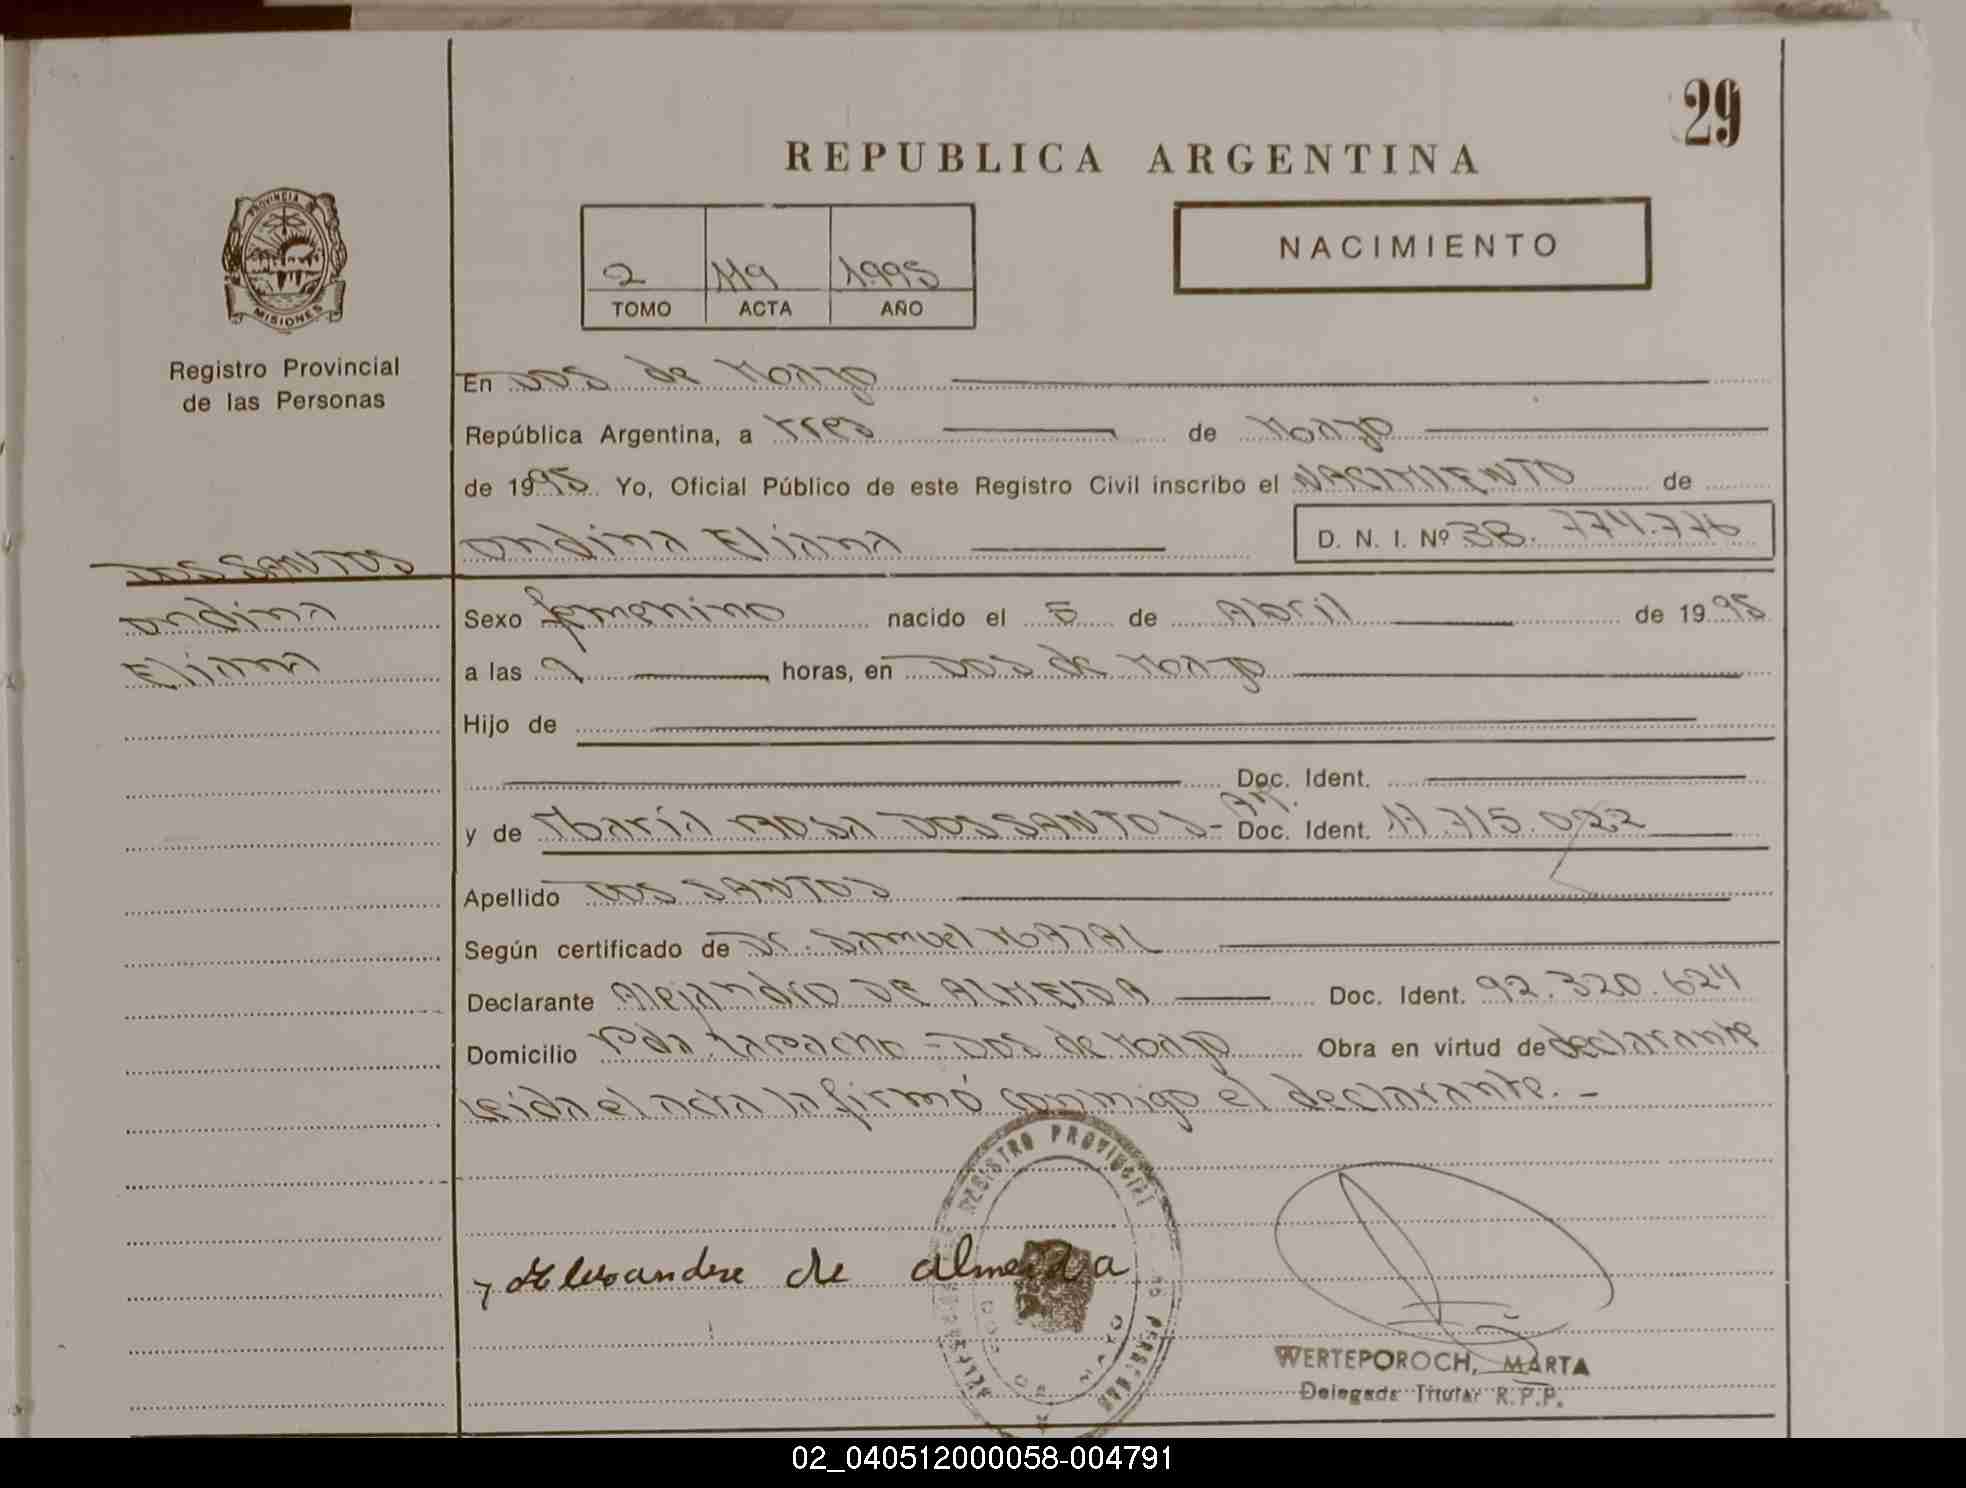 29
REPUBLICA ARGENTINA
2 119 1995
TOMO ACTA AÑO
NACIMIENTO
PROVINCIA DE MISIONES
Registro Provincial
de las Personas
En DOS de Mayo
República Argentina, a tres de Mayo
de 1995. Yo, Oficial Público de este Registro Civil inscribo el NACIMIENTO de
Ondina Eliana D. N. I. Nº 38.774.776
DOS SANTOS
Ondina
Eliana
Sexo femenino nacido el 5 de Abril de 1995
a las 9 horas, en DOS de Mayo
Hijo de
Doc. Ident.
y de Maria Rosa DOS SANTOS- Doc. Ident. 17.715.022
Apellido DOS SANTOS
Según certificado de Dr. Samuel
Declarante Alejandro DE ALMEIDA Doc. Ident. 92.320.624
Domicilio Pda. Lapacho - DOS de Mayo Obra en virtud de declarante
Leida el acta la firmó conmigo el declarante.-
REGISTRO PROVINCIAL DE LAS PERSONAS
DOS DE MAYO
Alexandre de almeida
WERTEPOROCH, MARTA
Delegada Titular R.P.P.
02_040512000058-004791